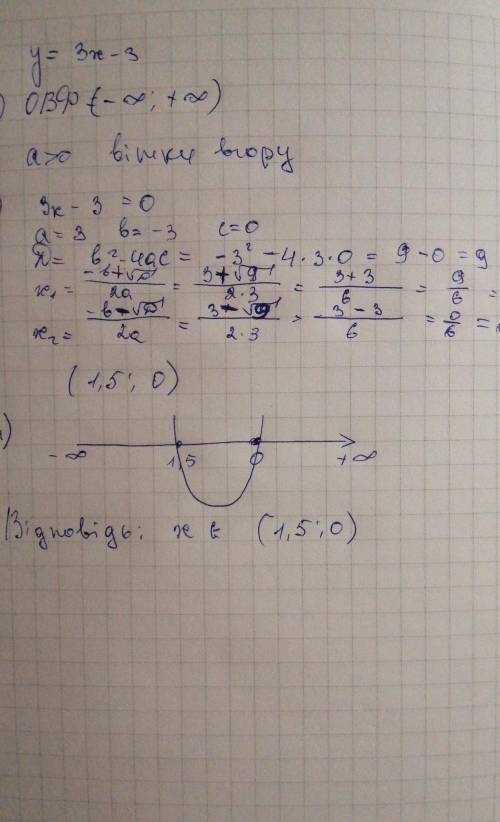 y = 3x - 3
) ОВФ (-∞; +∞)
a>0 вітки вгору
3x - 3 = 0
a = 3 b = -3 c = 0
D = b² - 4ac = -3² - 4·3·0 = 9 - 0 = 9
x₁ = (-b+√D)/2a = (3+√9)/(2·3) = (3+3)/6 = 9/6 =
x₂ = (-b-√D)/2a = (3-√9)/(2·3) = (3-3)/6 = 0/6 =
(1,5; 0)
)
-∞ 1,5 0 +∞
Відповідь: x ∈ (1,5; 0)